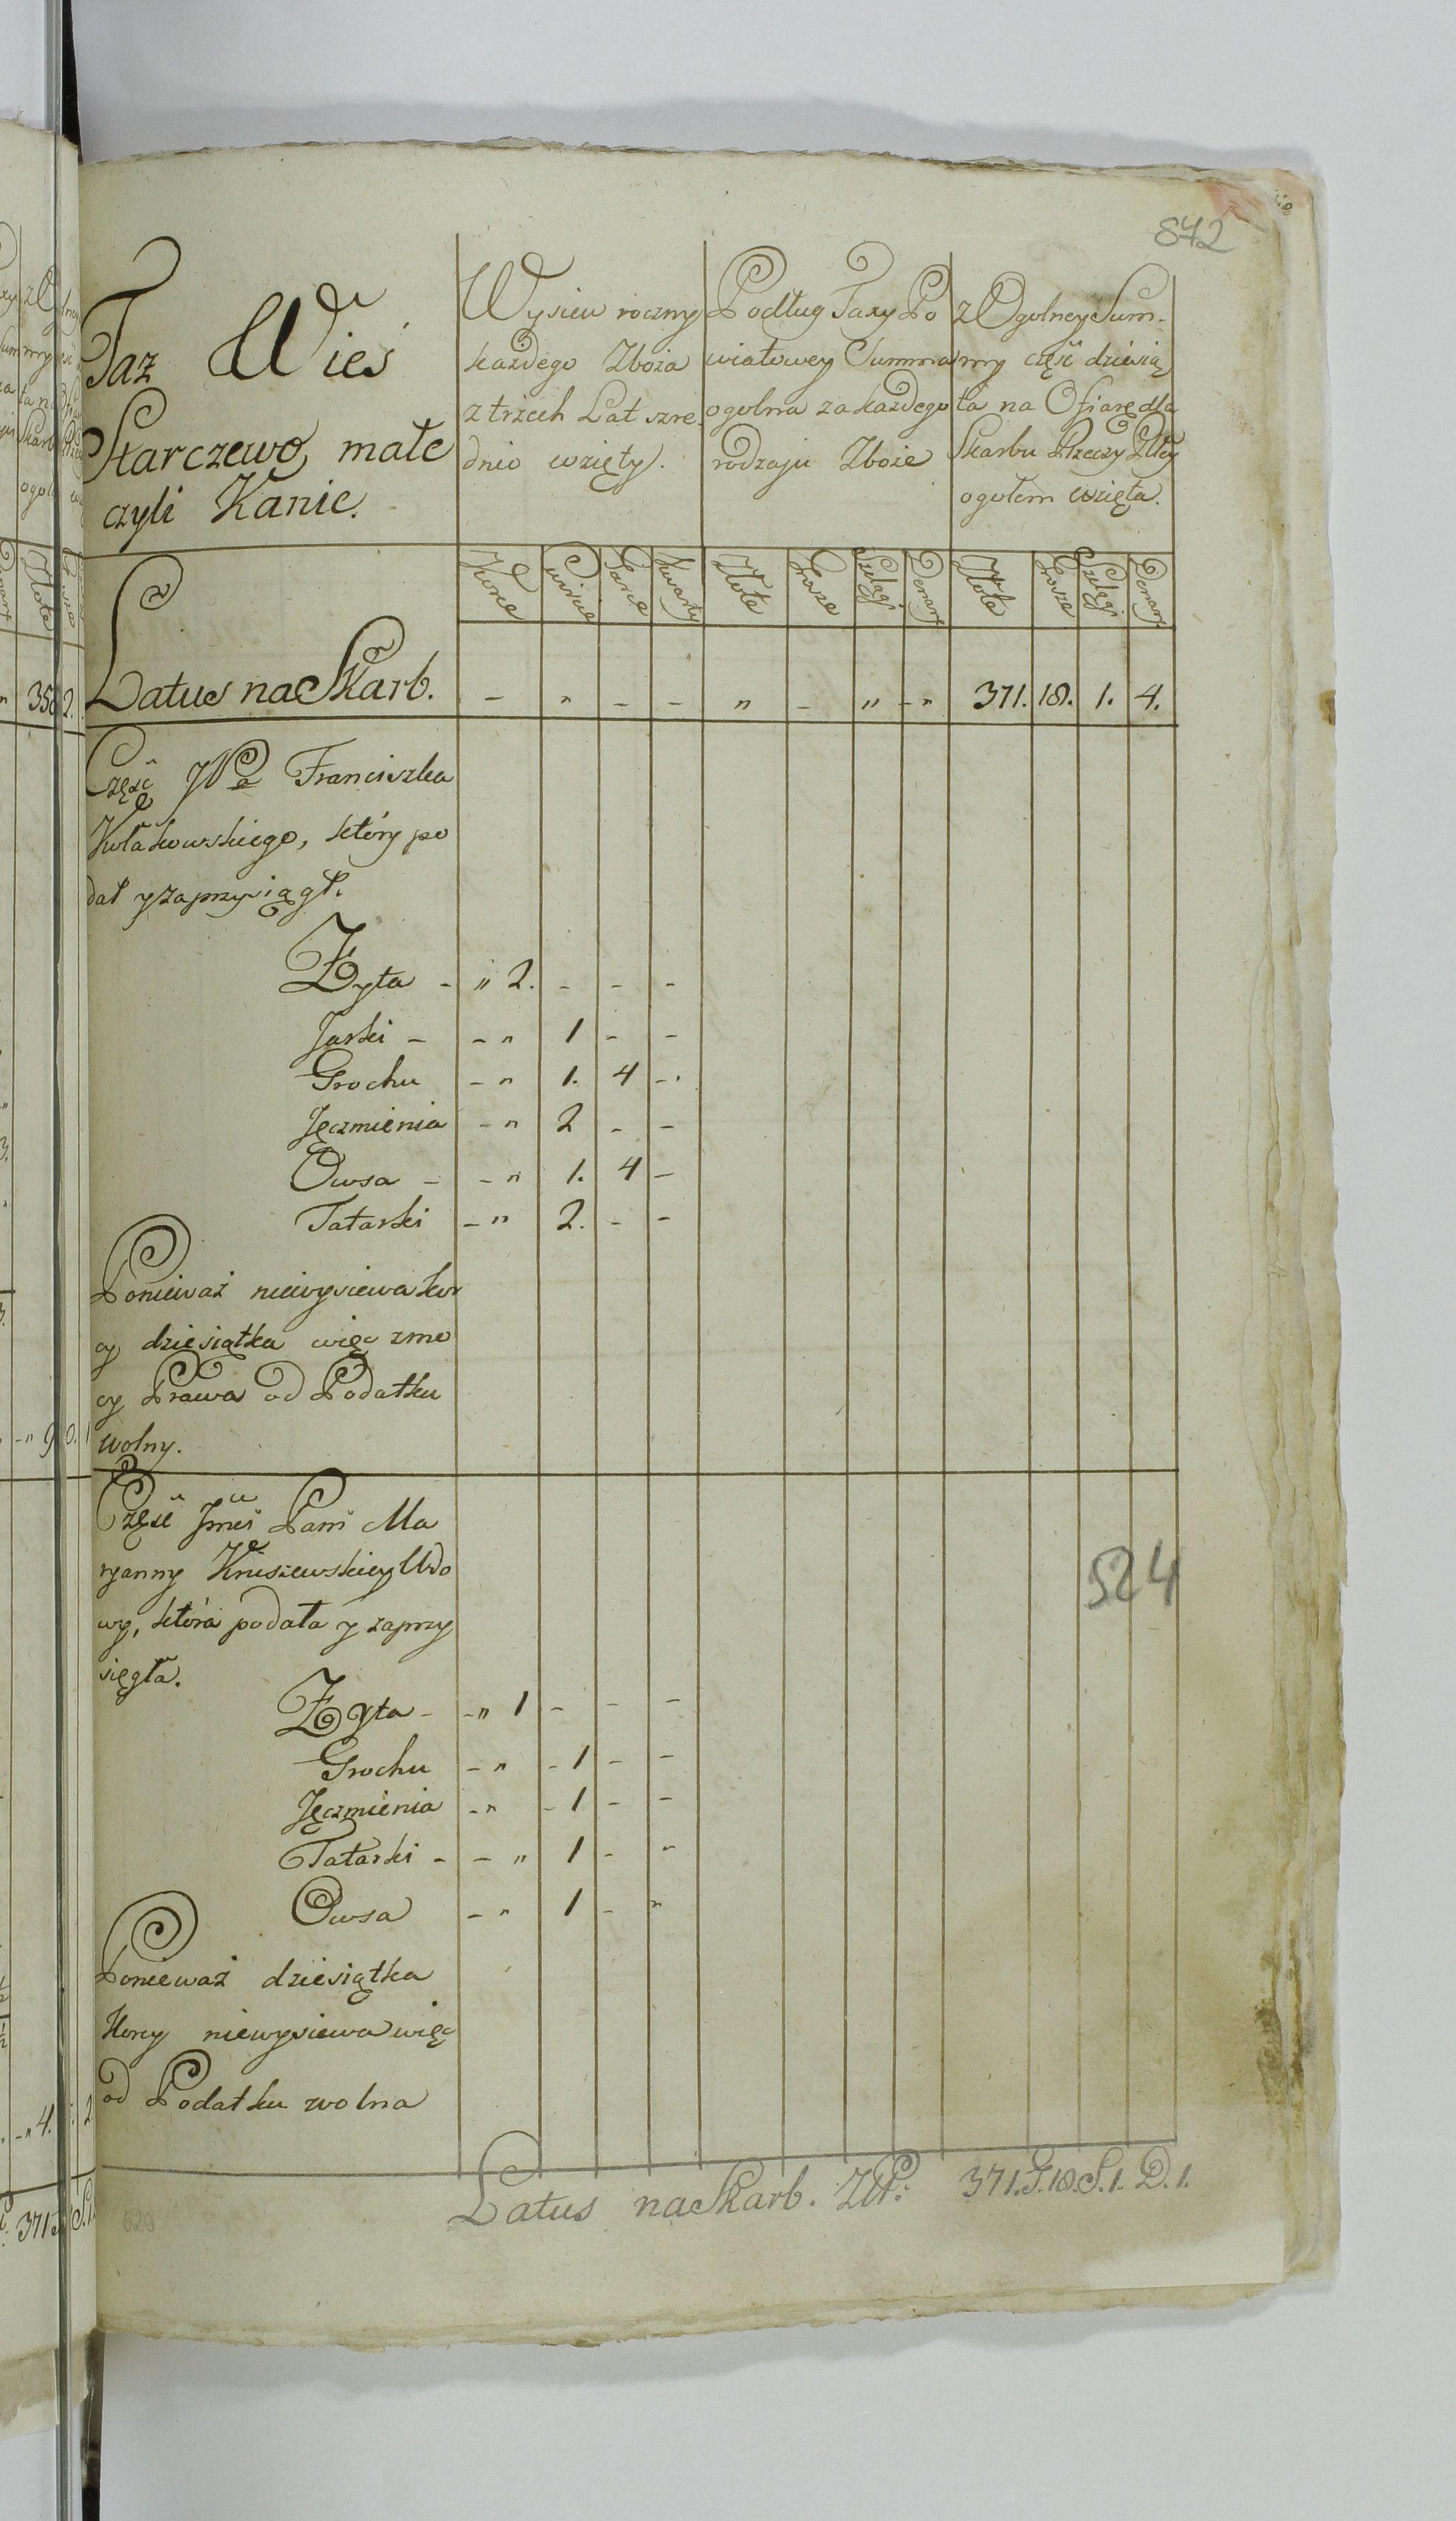 842
Taz Wieś
Starczewo małe
czyli Kanie.
Wysiew roczny
każdego Zboża
z trzech Lat szre
dnio wzięty.
Podług Taxy Po
wiatowey Summa
ogolna za każdego
rodzaju Zboże
z Ogolney Sum-
my część dziesią
ta na Ofiarę dla
Skarbu Rzeczy Pltey
ogołem wzięta.
Korce Cwierce Garce Kwarty Złote Grosze Szelągi Denary Złote Grosze Szelągi Denary
Latus na Skarb. - " - - " - " - " 371. 18. 1. 4.
Część JPa Franciszka
Kułakowskiego, który po
dał y zaprzysiągł.
Zyta - " 2. - - -
Jarki - - " 1 - -
Grochu - " 1. 4 - .
Jęczmienia - " 2 - -
Owsa - - " 1. 4 -
Tatarki - " 2. - -
Ponieważ niewysiewa kor
cy dziesiątka więc zmo
cy Prawa od Podatku
wolny.
Część Jmci Pani Ma
ryanny Kruszewskiey Wdo
wy, która podała y zaprzy
sięgła.
524
Zyta - - " 1 - - -
Grochu - " - 1 - -
Jęczmienia - " - 1 - -
Tatarki - - " 1 - "
Owsa - " 1 - "
Ponieważ dziesiątka
Korcy niewysiewa więc
od Podatku wolna
Latus na Skarb. Złt: 371. G. 18. S. 1. D. 1.
529